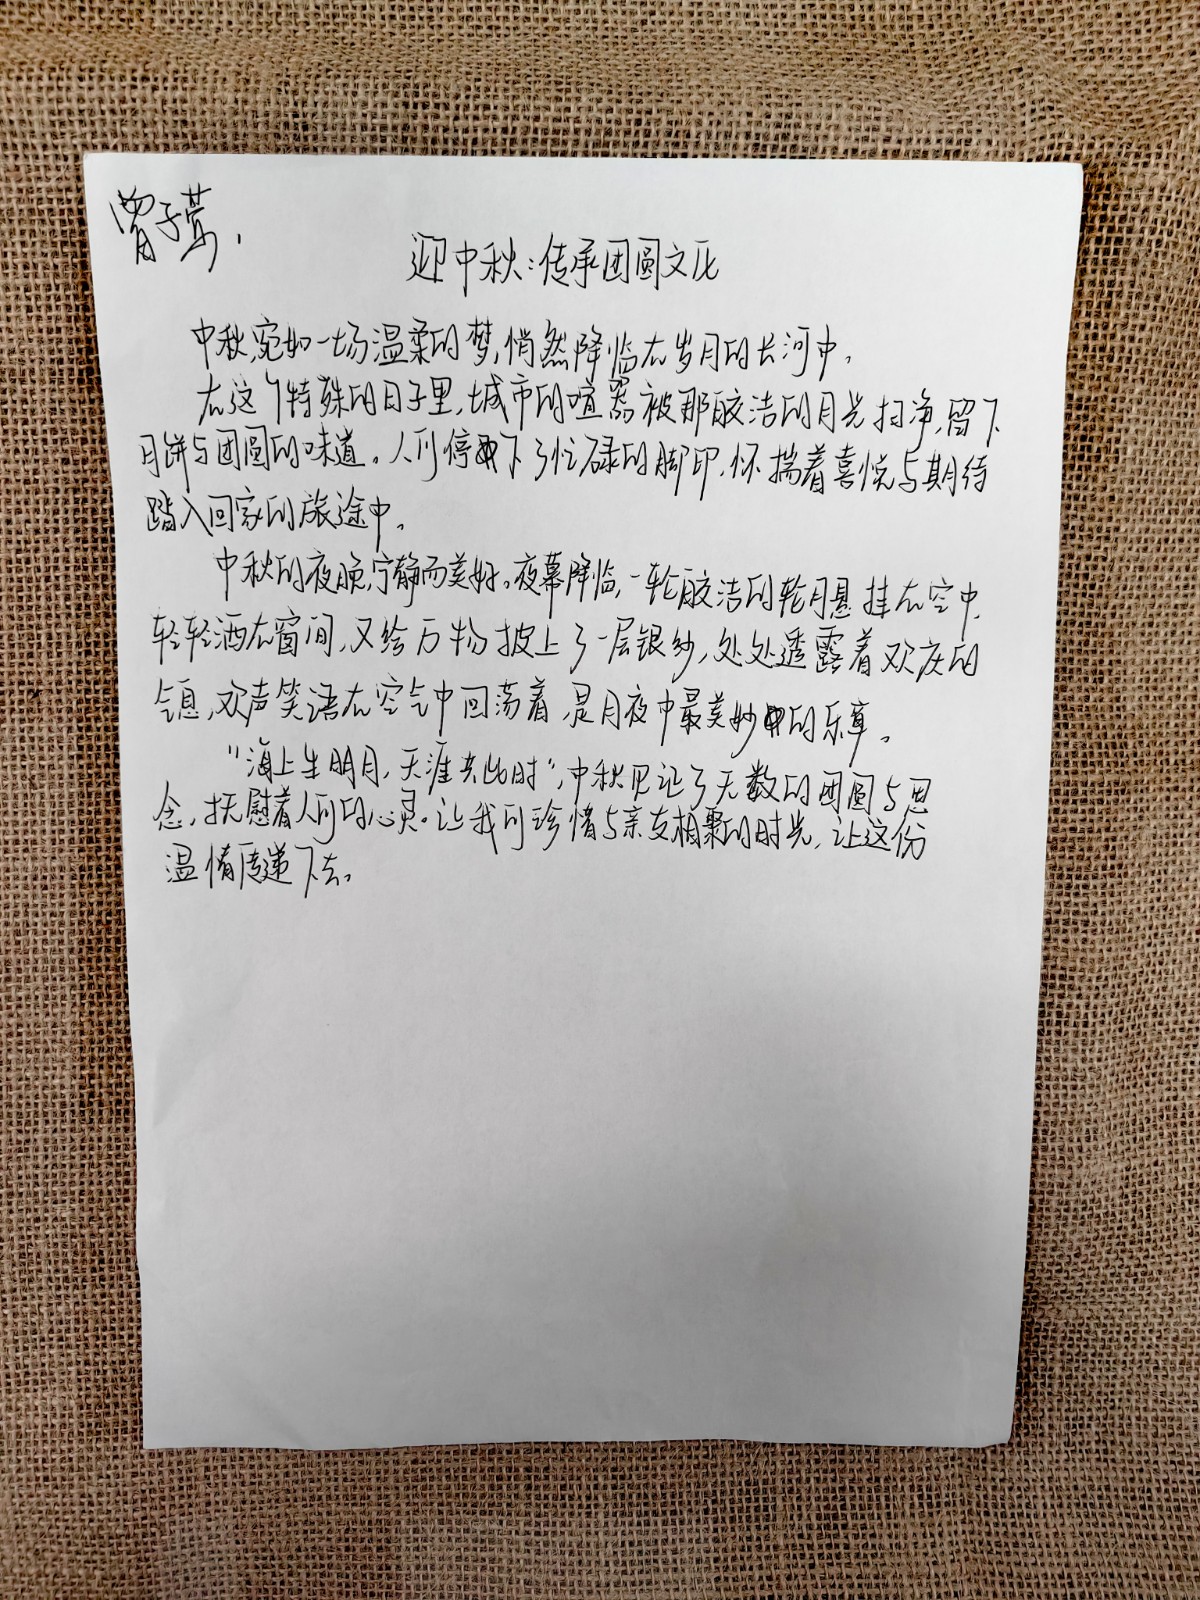 曾子莺.
迎中秋:传承团圆文化
中秋,宛如一场温柔的梦,悄然降临在岁月的长河中。
在这个特殊的日子里,城市的喧嚣被那皎洁的月光扫净,留下
月饼与团圆的味道。人们停下了忙碌的脚印,怀揣着喜悦与期待
踏入回家的旅途中。
中秋的夜晚,宁静而美好。夜幕降临,一轮皎洁的轮月悬挂在空中,
轻轻洒在窗间,又给万物披上了一层银纱,处处透露着欢庆的
气息,欢声笑语在空气中回荡着,是月夜中最美妙的乐章。
“海上生明月,天涯共此时”,中秋见证了无数的团圆与思
念,抚慰着人们的心灵。让我们珍惜与亲友相聚的时光,让这份
温情传递下去。